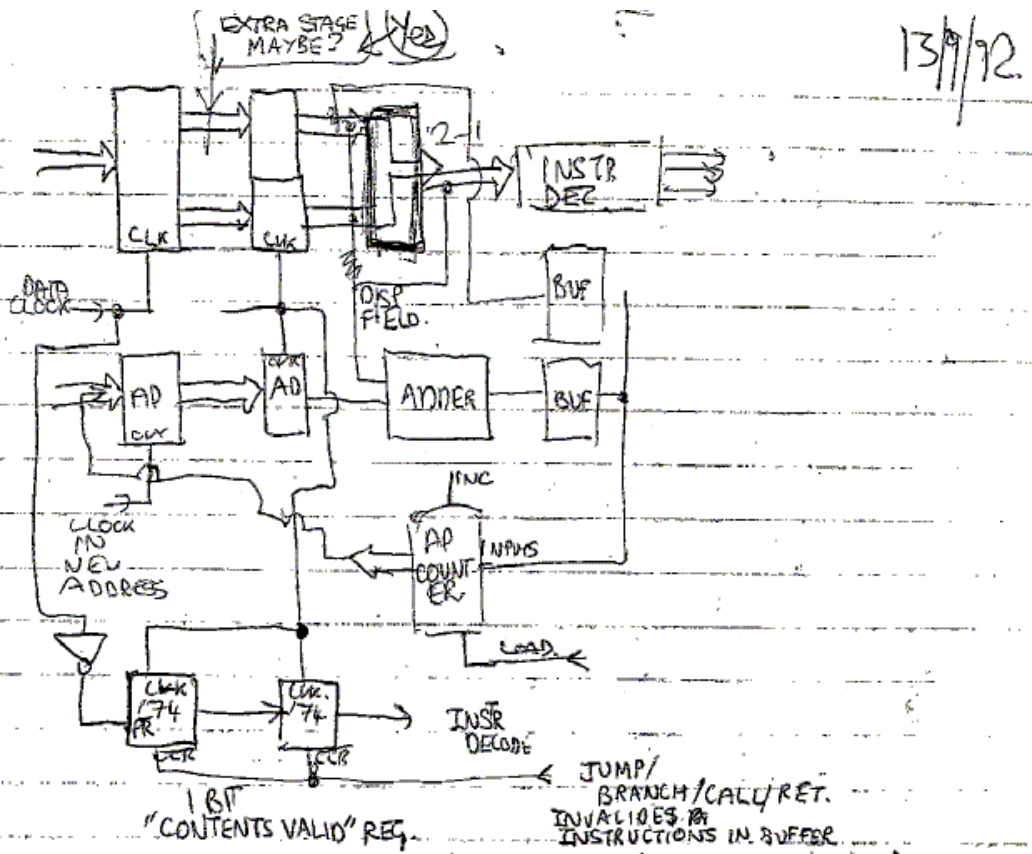 EXTRA STAGE
MAYBE?
Yes
13/9/92.
2-1
INSTR
DEC
CLK
CLK
DATA
CLOCK
DISP
FIELD.
BUF
CLK
AD
AD
CLK
ADDER
BUF
INC
CLOCK
IN
NEW
ADDRESS
AD
COUNT
ER
INPUTS
LOAD.
CLOCK
'74
PR
CLK.
'74
CLR
CLR
INSTR
DECODE
1 BIT
"CONTENTS VALID" REG.
JUMP/
BRANCH/CALL/RET.
INVALIDES
INSTRUCTIONS IN BUFFER